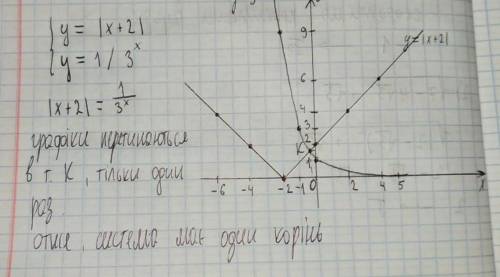 y = |x+2|
y = 1 / 3^x
|x+2| = 1/3^x
графіки перетинаються
в т. K, тільки один
раз.
отже, система має один корінь
y=|x+2|
9
6
4
3
2
K
1
-6 -4 -2 -1 0 2 4 5 x